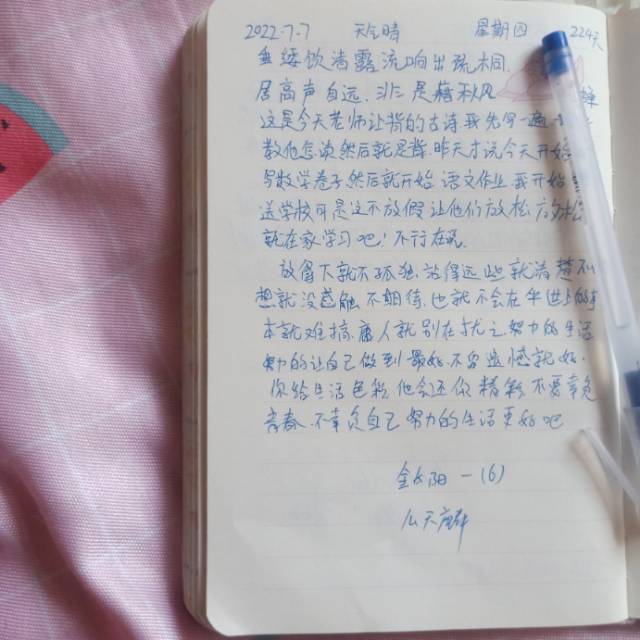 2022.7.7 天气晴 星期四 224天
垂緌饮清露流响出疏桐
居高声自远.非是藉秋风 蝉
这是今天老师让背的古诗我先学一遍
教他怎读然后就是背.昨天才说今天开始
写数学卷子然后就开始语文作业我开始
送学校可是这不放假让他们放松放松
就在家学习吧!不行在说.
放留下就不孤独.站得远些就清楚不
想就没感触不期待.也就不会在乎世上的事
本就难搞.庸人就别在扰之努力的生活
努力的让自己做到最好不留遗憾就好.
你给生活色彩他会还你精彩不要辜负
青春.不辜负自己努力的生活更好吧
一(6)